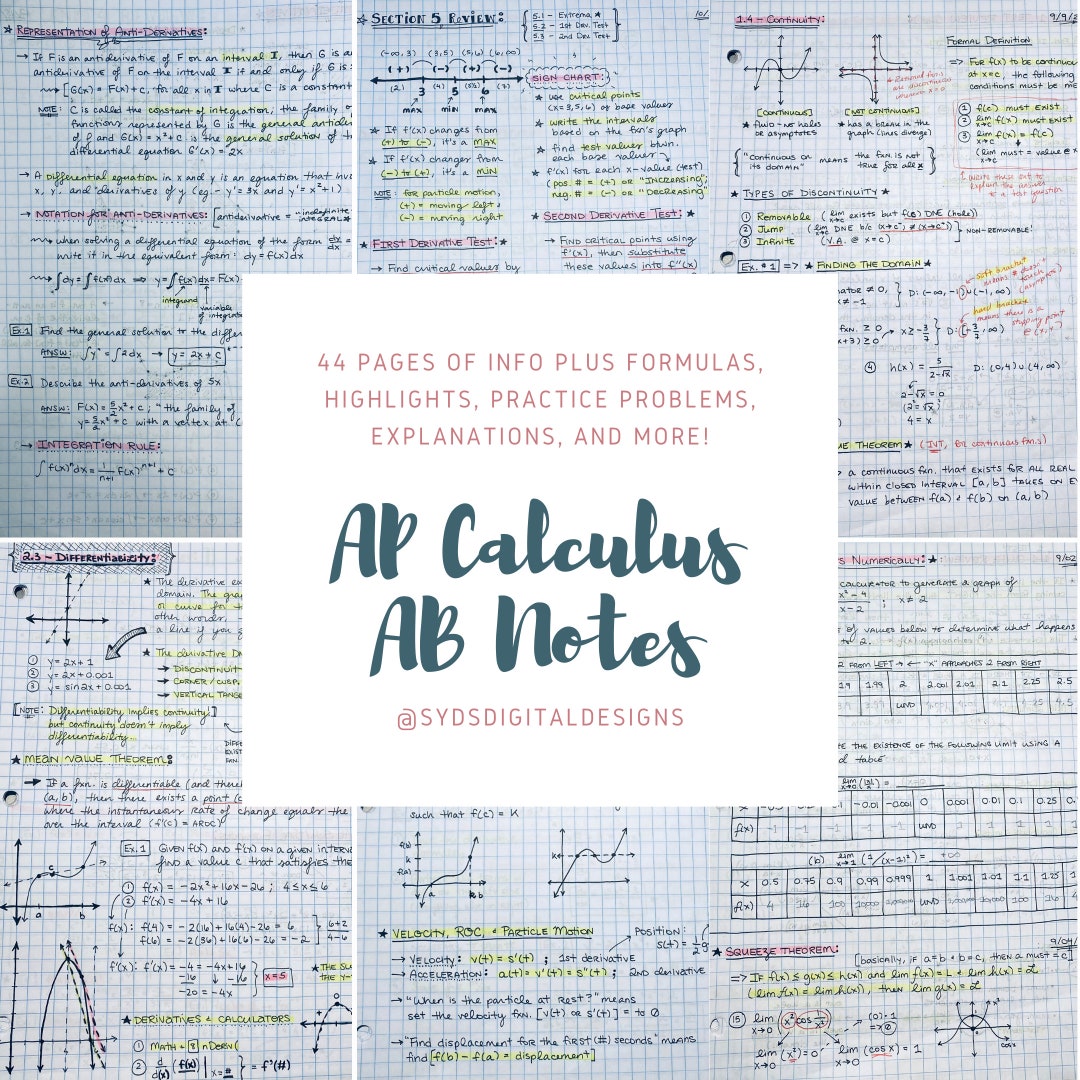 ★ Representation of Anti-Derivatives:
→ If F is an antiderivative of F on an interval I, then G is a
antiderivative of F on the interval I if and only if G is
[G(x) = F(x) + C, for all x in I where C is a constant
NOTE: C is called the constant of integration; the family of
functions represented by G is the general antide
of f and G(x) = x² + c is the general solution of th
differential equation G'(x) = 2x
→ A differential equation in x and y is an equation that inv
x, y, and derivatives of y (eg.- y' = 3x and y' = x² + 1)
→ NOTATION for ANTI-DERIVATIVES: [antiderivative = "indefinite
INTEGRAL★
when solving a differential equation of the form dy/dx =
write it in the equivalent form: dy = f(x)dx
∫dy = ∫f(x)dx ⇒ y = ∫f(x)dx = F(x)
integrand
variable
of integratio
Ex.1 Find the general solution to the differ
ANSW: ∫y' = ∫2dx → y = 2x + c
Ex.2 Describe the anti-derivatives of 5x
ANSW: F(x) = 5/2 x² + c ; "the family of
y = 5/2 x² + c with a vertex at (
→ INTEGRATION RULE:
∫f(x)ⁿdx = 1/n+1 f(x)ⁿ⁺¹ + c
★ SECTION 5 REVIEW:
5.1 - Extrema ★
5.2 - 1st Dev. Test
5.3 - 2nd Dev. Test
10/
(-∞,3) (3,5) (5,6) (6,∞)
(+) (-) (+) (-)
(2) 3 (4) 5 (5.5) 6 (7)
max min max
SIGN CHART:
★ use critical points
(x=3,5,6) as base values
★ write the intervals
based on the fxn's graph
★ find test values btwn.
each base values
★ f'(x) for each x-value (test)
(pos. # = (+) or "INCREASING"
neg. # = (-) or "DECREASING"
★ If f'(x) changes from
(+) to (-), it's a MAX
★ If f'(x) changes from
(-) to (+), it's a MIN
NOTE: for particle motion,
(+) = moving left &
(-) = moving right
★ FIRST DERIVATIVE TEST: ★
→ Find critical values by
★ SECOND DERIVATIVE TEST:
→ FIND CRITICAL POINTS USING
f'(x), then substitute
these values into f''(x)
1.4 - Continuity:
9/9/2
[CONTINUOUS]
★ fluid - no holes
or asymptotes
[NOT CONTINUOUS]
★ has a break in the
graph (lines diverge)
"Continuous on means the fxn. is not
its domain" true for all x
FORMAL DEFINITION
⇒ For f(x) to be continuou
at x=c, the following
conditions must be me
① f(c) must EXIST
② lim x→c f(x) must EXIST
③ lim x→c f(x) = f(c)
(lim x→c must = value @ x
★ TYPES OF DISCONTINUITY ★
① Removable (lim x→c exists but f(c) DNE (hole))
② Jump (lim x→c DNE b/c (x→c⁻) ≠ (x→c⁺))
③ Infinite (V.A. @ x=c)
NON-REMOVABLE!
Ex. #1 ⇒ ★ FINDING THE DOMAIN ★
ator ≠ 0,
≠ -1
D: (-∞,-1)∪(-1,∞)
soft bracket
hard bracket
means there is a
stopping point
fxn. ≥ 0
x+3) ≥ 0
x ≥ -3/7
D: [-3/7, ∞)
④ h(x) = 5/2-√x D: (0,4)∪(4,∞)
2-√x = 0
(2² = √x)²
4 = x
ME THEOREM ★ (IVT, for continuous fxn.s)
a continuous fxn. that exists for ALL REAL
within closed interval [a,b] takes on E
value between f(a) & f(b) on (a,b)
44 PAGES OF INFO PLUS FORMULAS,
HIGHLIGHTS, PRACTICE PROBLEMS,
EXPLANATIONS, AND MORE!
AP Calculus
AB Notes
@SYDSDIGITALDESIGNS
2.3 - Differentiability:
★ The derivative ex
domain. The gra
or curve for t
other words,
a line if you z
★ The derivative DN
→ DISCONTINUIT
→ CORNER / CUSP,
→ VERTICAL TANGE
① y = 2x + 1
② y = 2x + 0.001
③ y = sin2x + 0.001
[NOTE: Differentiability implies continuity!]
but continuity doesn't imply
differentiability...
★ MEAN VALUE THEOREM:
→ If a fxn. is differentiable (and there
(a,b), then there exists a point (c
where the instantaneous rate of change equals the
over the interval (f'(c) = AROC)
Ex.1 GIVEN f(x) AND f'(x) ON A GIVEN INTERV
find a value c that satisfies the
① f(x) = -2x² + 16x - 26 ; 4≤x≤6
② f'(x) = -4x + 16
f(x): f(4) = -2(16) + 16(4) - 26 = 6
f(6) = -2(36) + 16(6) - 26 = -2
6+2
4-6
f'(x): f'(x) = -4 = -4x + 16
-16 -16
-20 = -4x
x=5
★ DERIVATIVES & CALCULATORS
① MATH + 8 nDeriv(
② d/d(x) (f(x)) | x=# = f'(#)
such that f(c) = K
★ VELOCITY, ROC, & PARTICLE MOTION
→ VELOCITY: v(t) = s'(t) ; 1st derivative
→ ACCELERATION: a(t) = v'(t) = s''(t) ; 2nd derivative
POSITION:
s(t) = ½g
→ "When is the particle at rest?" means
set the velocity fxn. [v(t) or s'(t)] = to 0
→ "Find displacement for the first (#) seconds" means
find [f(b) - f(a) = displacement]
s Numerically: ★
9/02
calculator to generate a graph of
x²-4
x-2 ; x ≠ 2
of values below to determine what happens
2 FROM LEFT → ← "X" APPROACHES 2 FROM RIGHT
1.9 1.99 2 2.001 2.01 2.1 2.25 2.5
UND 4.5
te the existence of the following limit using a
d table
-0.1 -0.01 -0.001 0 0.001 0.01 0.1 0.25
f(x) -1 -1 -1 -1 UND 1 1 1 1
(b) lim x→1 (1/(x-1)²) = +∞
x 0.5 0.75 0.9 0.99 0.999 1 1.001 1.01 1.1 1.25
f(x) 4 16 100 UND 100 16
9/04/
★ SQUEEZE THEOREM:
[basically, if a=b & b=c, then a must = c]
⇒ If f(x) ≤ g(x) ≤ h(x) and lim f(x) = L & lim h(x) = L
(lim f(x) = lim h(x)), then lim g(x) = L
⑮ lim x→0 (x² cos 1/x²)
(0)·1
=0
lim x→0 (x²) = 0 lim x→0 (cosx) = 1
x²
cosx